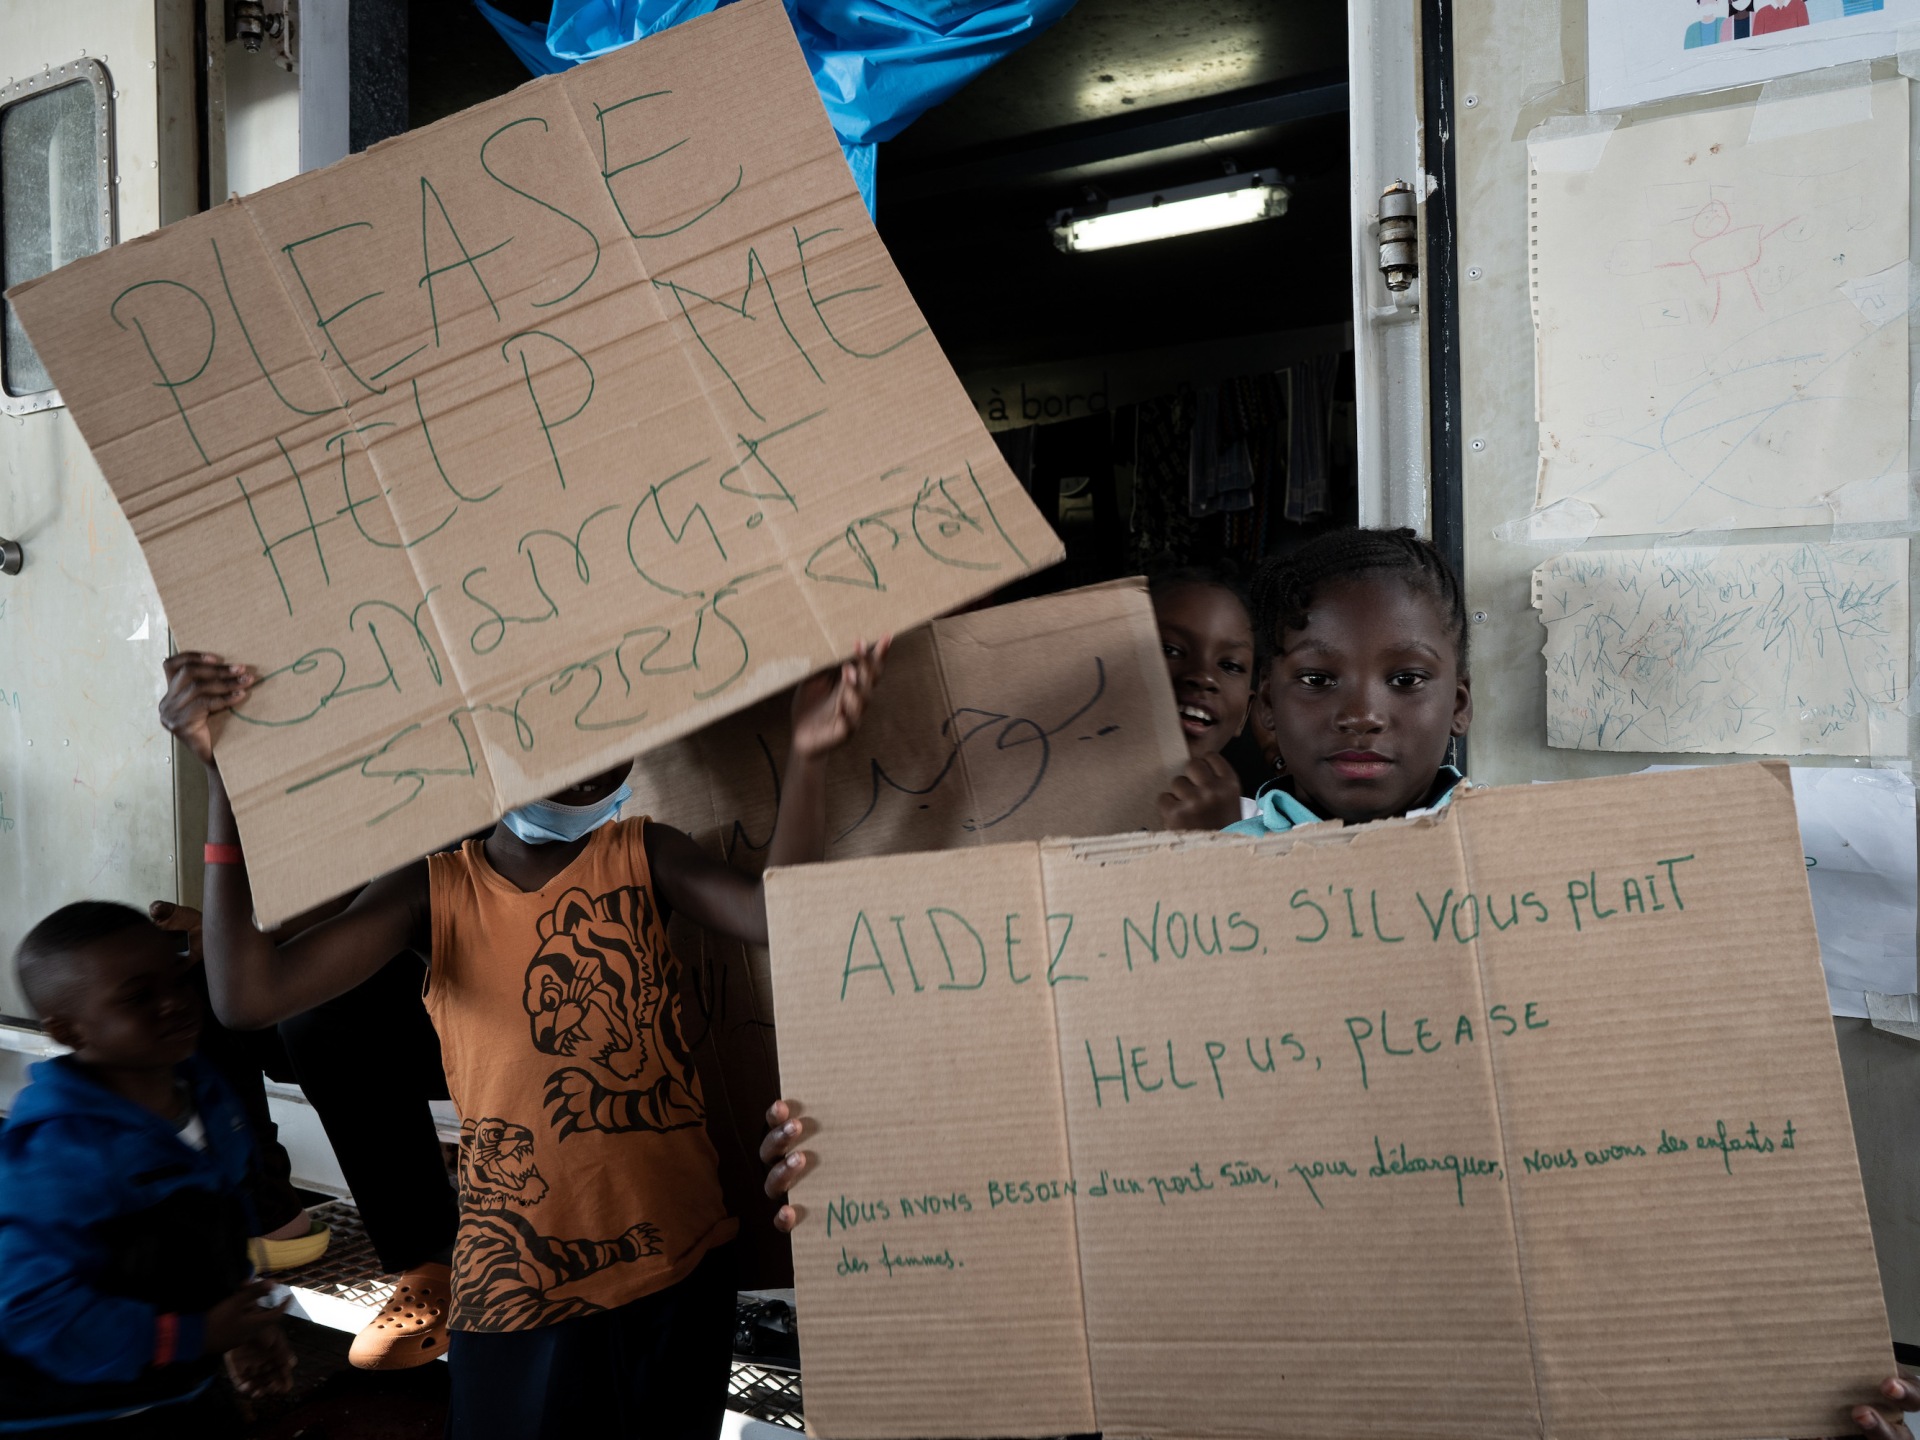 PLEASE
HELP ME
আমাদের
সাহায্য করো
à bord
يوجد
AIDEZ-NOUS, S'IL VOUS PLAIT
HELP US, PLEASE
NOUS AVONS BESOIN d'un port sûr, pour débarquer, nous avons des enfants et
des femmes.